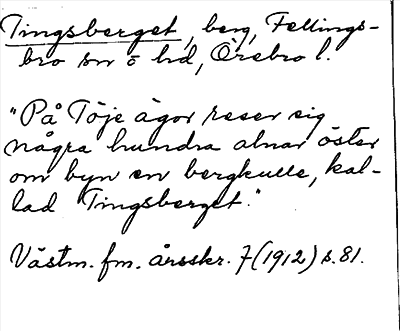 Tingsberget, berg, Fellings-
bro sn o hd, Örebro l.
"På Töje ägor reser sig
några hundra alnar öster
om byn en bergkulle, kal-
lad "Tingsberget."
Västm. fm. årsskr. 7 (1912) s. 81.